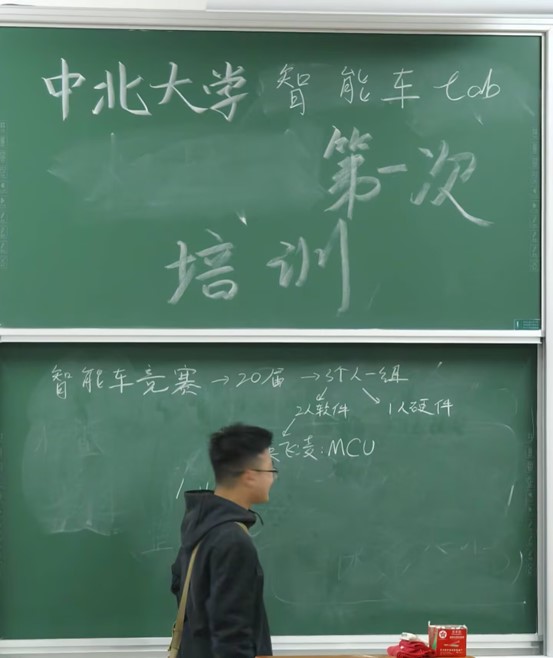 中北大学 智能车 lab
第一次
培训
智能车竞赛→20届→3个人一组
2人软件 1人硬件
飞凌:MCU